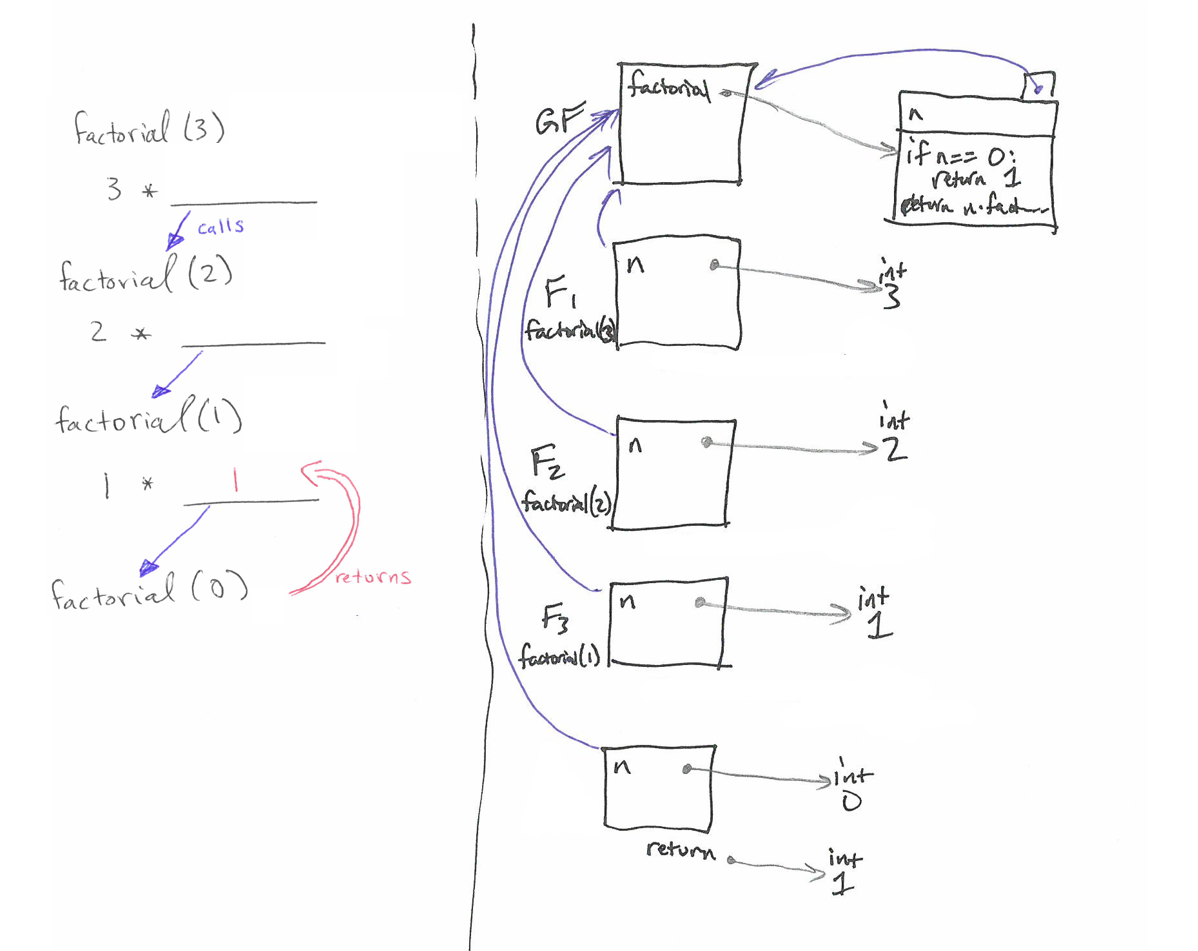 factorial (3)
3 *
calls
factorial (2)
2 *
factorial (1)
1 * 1
returns
factorial (0)
GF
factorial
n
if n== 0:
return 1
return n·fact
F1
factorial(3)
n
int
3
F2
factorial(2)
n
int
2
F3
factorial(1)
n
int
1
n
int
0
return
int
1